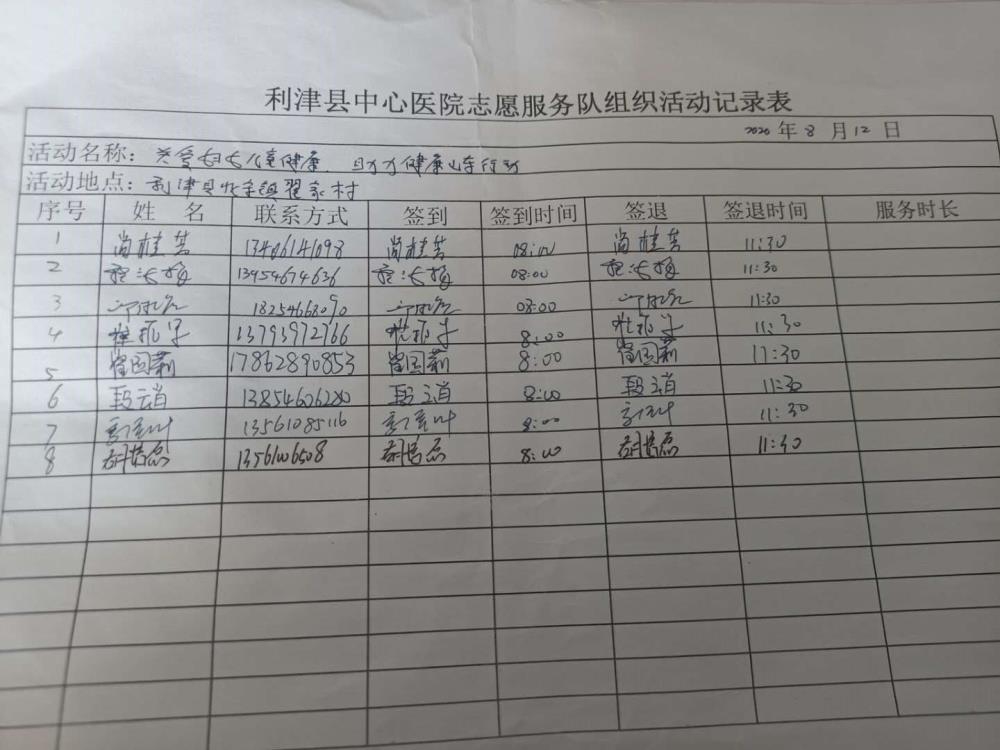 利津县中心医院志愿服务队组织活动记录表
2020 年 8 月 12 日
活动名称: 关爱妇女儿童健康、助力健康山东行动
活动地点: 利津县北宋镇翟家村
序号 姓 名 联系方式 签到 签到时间 签退 签退时间 服务时长
1 尚桂芳 13406141098 尚桂芳 08:00 尚桂芳 11:30
2 13454674636 08:00 11:30
3 18254668090 08:00 11:30
4 13793972766 8:00 11:30
5 曾国莉 17862890853 曾国莉 8:00 曾国莉 11:30
6 段云肖 13854626280 段云肖 8:00 段云肖 11:30
7 13561085116 8:00 11:30
8 1356106508 8:00 11:30